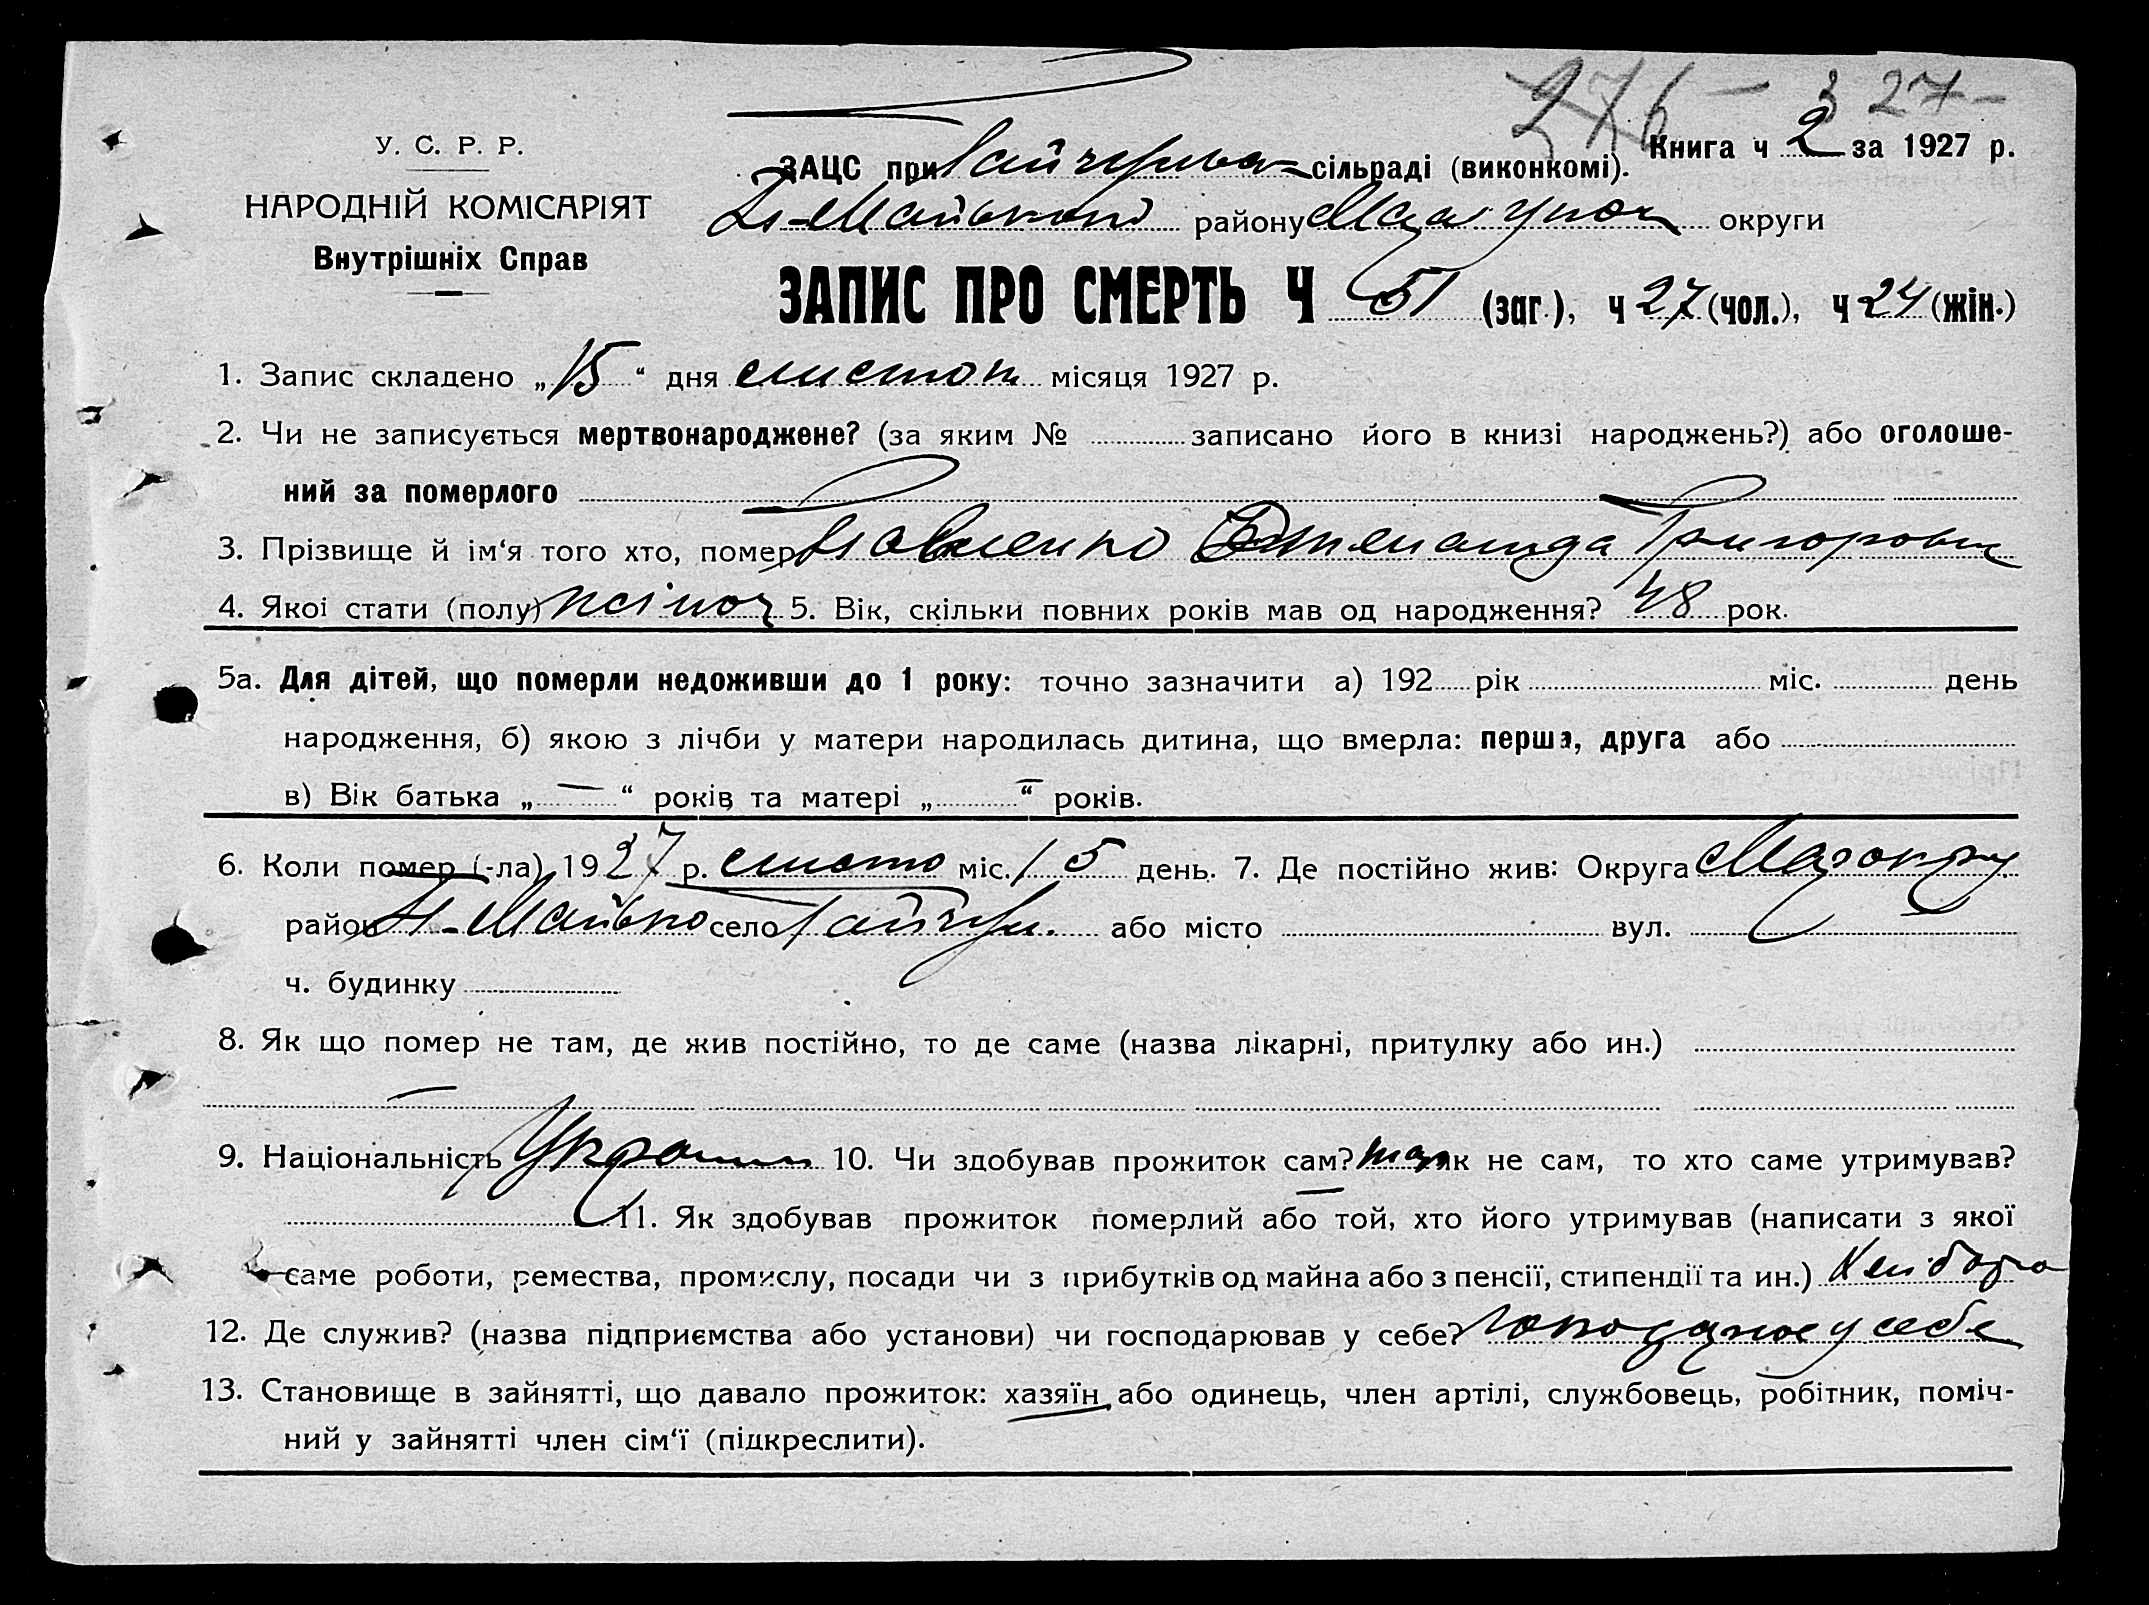 276 — 327 —
У. С. Р. Р.
НАРОДНІЙ КОМІСАРІЯТ
Внутрішніх Справ
Книга ч 2 за 1927 р.
ЗАЦС при Гайчурськ сільраді (виконкомі).
району округи
ЗАПИС ПРО СМЕРТЬ Ч 51 (заг.), ч 27 (чол.), ч 24 (жін.)
1. Запис складено „15“ дня листоп місяця 1927 р.
2. Чи не записується мертвонароджене? (за яким № записано його в книзі народжень?) або оголоше-
ний за померлого
3. Прізвище й ім‘я того хто, помер Павленко Григоровн
4. Якої стати (полу) жіноч 5. Вік, скільки повних років мав од народження? 48 рок.
5а. Для дітей, що померли недоживши до 1 року: точно зазначити а) 192 рік міс. день
народження, б) якою з лічби у матери народилась дитина, що вмерла: перша, друга або
в) Вік батька „ — “ років та матері „ — “ років.
6. Коли помер (-ла) 1927 р. листо міс. 15 день. 7. Де постійно жив: Округа
район село Гайчур. або місто вул.
ч. будинку
8. Як що помер не там, де жив постійно, то де саме (назва лікарні, притулку або ин.)
—
9. Національність Україн 10. Чи здобував прожиток сам? так як не сам, то хто саме утримував?
11. Як здобував прожиток померлий або той, хто його утримував (написати з якої
саме роботи, ремества, промислу, посади чи з прибутків од майна або з пенсії, стипендії та ин.) Хлібороб
12. Де служив? (назва підприємства або установи) чи господарював у себе? у себе
13. Становище в зайнятті, що давало прожиток: хазяїн або одинець, член артілі, службовець, робітник, поміч-
ний у зайнятті член сім‘ї (підкреслити).